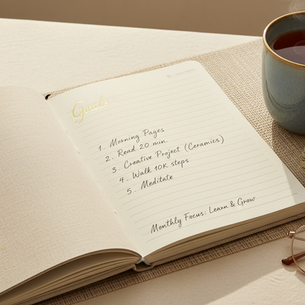 Goals
1. Morning Pages
2. Read 20 min.
3. Creative Project (Ceramics)
4. Walk 10K steps
5. Meditate
Monthly Focus: Learn & Grow